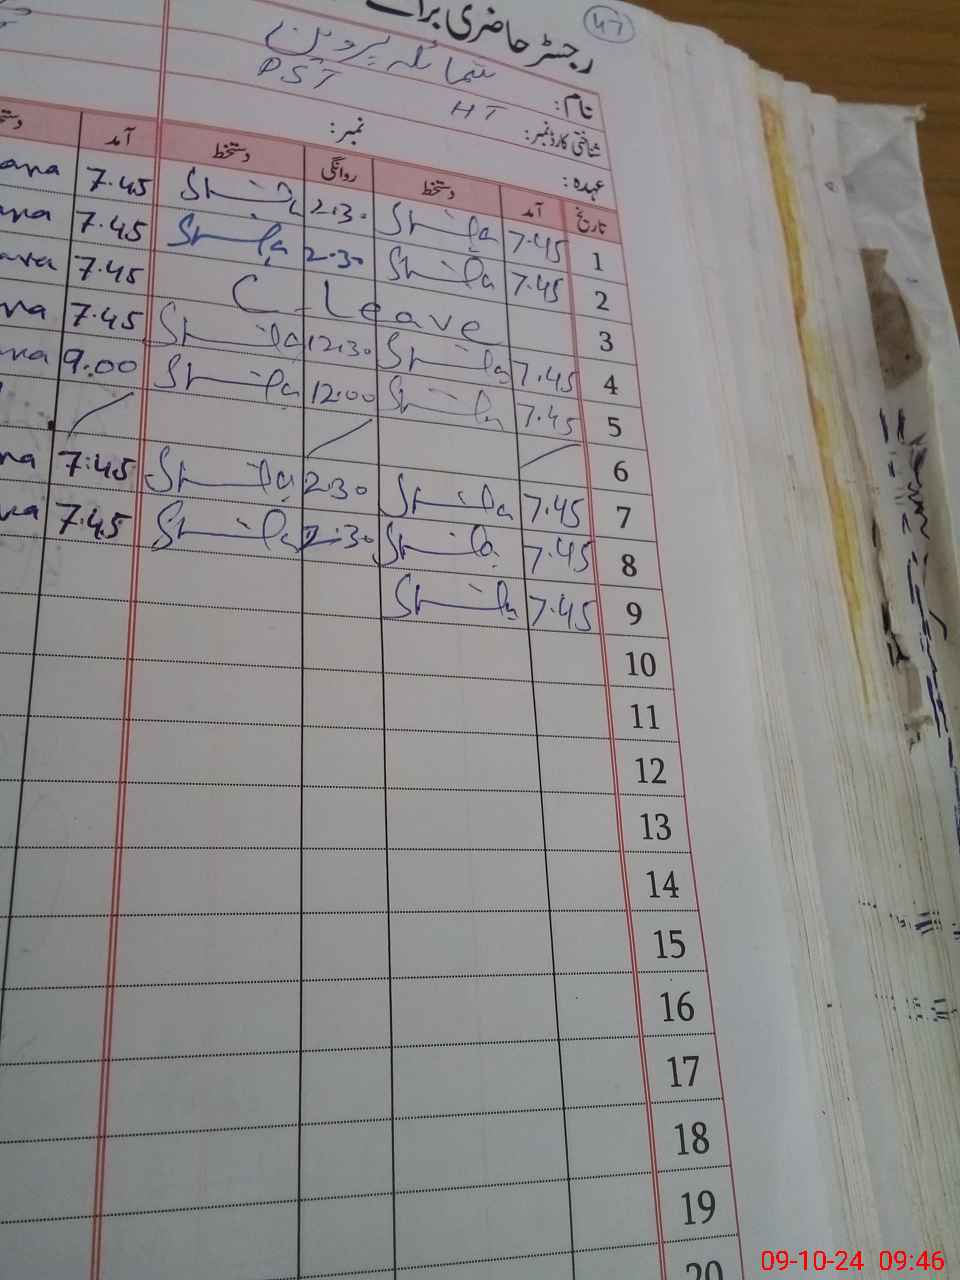 47
رجسٹر حاضری برائے
نام: شمائلہ پروین
شناختی کارڈ نمبر:
PST HT
عہدہ: نمبر:
تاریخ آمد دستخط روانگی دستخط آمد
1 7.45 Shaila 2.30 Shaila 7.45
2 7.45 Shaila 2.30 Shaila 7.45
3 C-Leave 7.45
4 7.45 Shaila 12.30 Shaila 7.45
5 7.45 Shaila 12.00 Shaila 9.00
6
7 7.45 Shaila 2.30 Shaila 7.45
8 7.45 Shaila 2.30 Shaila 7.45
9 7.45 Shaila
10
11
12
13
14
15
16
17
18
19
20
09-10-24 09:46